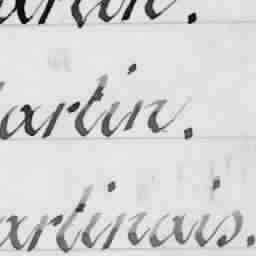 artin.
artin.
artinais.